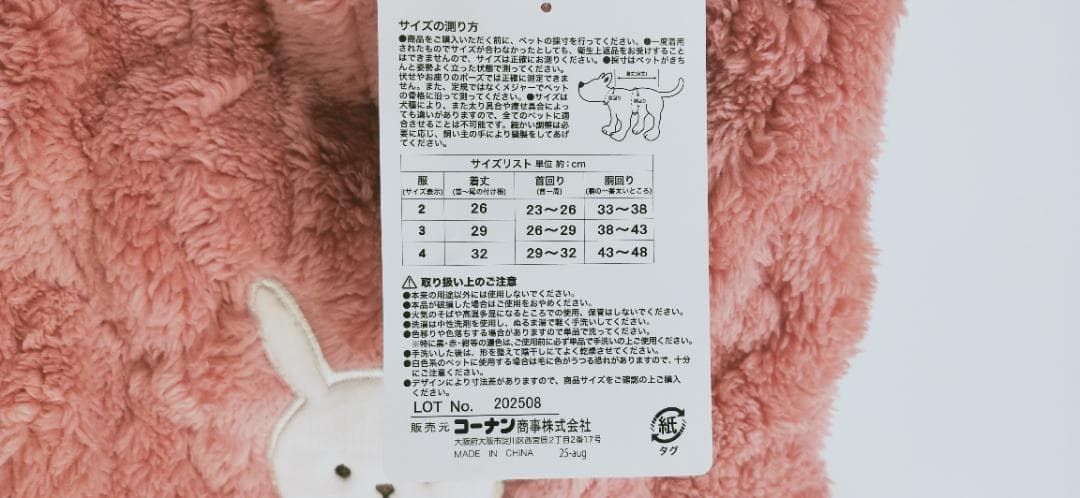 サイズの測り方
●商品をご購入いただく前に、ペットの採寸を行ってください。●一度着用
されたものでサイズが合わなかったとしても、衛生上返品をお受けすること
はできませんので、サイズは正確にお測りください。●採寸はペットがきち
んと姿勢よく立った状態で測ってください。
伏せやお座りのポーズでは正確に測定できませ
ん。また、定規ではなくメジャーでペット
の骨格に沿って測ってください。●サイズは
犬種により、また太り具合や痩せ具合によっ
ても違いがありますので、全てのペットに適
合させることは不可能です。細かい調整は必
要に応じ、飼い主の手により縫製をしてあげ
てください。
サイズリスト 単位 約:cm
服 着丈 首回り 胴回り
(サイズ表示) (首〜尾の付け根) (首一周) (胴の一番太いところ)
2 26 23〜26 33〜38
3 29 26〜29 38〜43
4 32 29〜32 43〜48
取り扱い上のご注意
●本来の用途以外には使用しないでください。
●本品が破損した場合はご使用をおやめください。
●火気のそばや高温多湿になるところでの使用、保管はしないでください。
●洗濯は中性洗剤を使用し、ぬるま湯で軽く手洗いしてください。
●色移りや色落ちする場合がありますので単品で洗ってください。
※特に黒・赤・紺等の濃色は、ご使用前に必ず単品で手洗いの上ご使用ください。
●手洗いした後は、形を整えて陰干しにてよく乾燥させてください。
●白色系のペットに使用する場合は毛に色がうつる恐れがありますので、十分
にご注意ください。
●デザインにより寸法差がありますので、商品サイズをご確認の上ご購入
ください。
LOT No. 202508
販売元 コーナン商事株式会社
大阪府大阪市淀川区西宮原2丁目2番17号
MADE IN CHINA 25-aug
紙
タグ